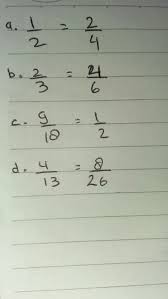 a. 1/2 = 2/4
b. 2/3 = 4/6
c. 9/18 = 1/2
d. 4/13 = 8/26